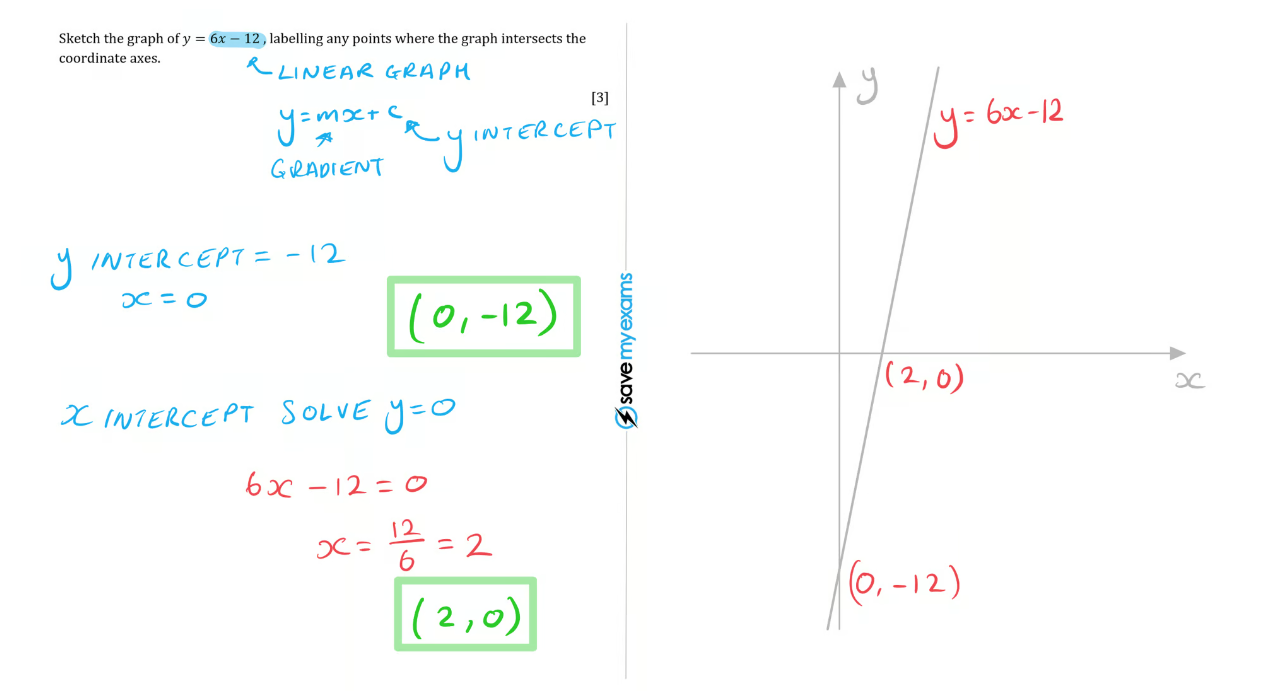 Sketch the graph of y = 6x − 12, labelling any points where the graph intersects the
coordinate axes.
LINEAR GRAPH
[3]
y = mx + c
y INTERCEPT
GRADIENT
y INTERCEPT = -12
x = 0
(0, -12)
x INTERCEPT SOLVE y = 0
6x - 12 = 0
x = 12/6 = 2
(2, 0)
save my exams
y
y = 6x - 12
(2, 0)
x
(0, -12)